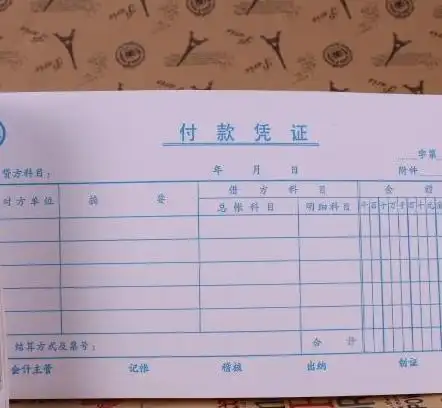 付款凭证
字第
贷方科目：　年　月　日　附件
对方单位　摘要　借方科目　金额
总帐科目　明细科目　千百十万千百十元
结算方式及票号：　合计
会计主管　记帐　稽核　出纳　制证